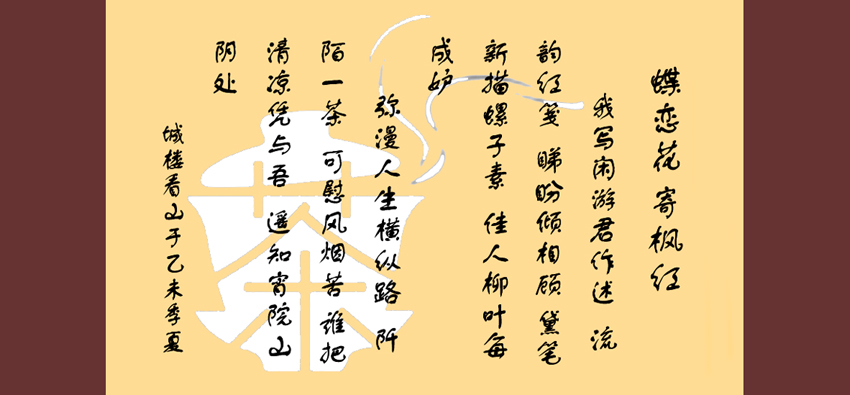 蝶恋花 寄枫红
我写闲游君作述 流
韵红笺 睇盼倾相顾 黛笔
新描螺子素 佳人柳叶每
成妒
弥漫人生横纵路 阡
陌一茶 可慰风烟苦 谁把
清凉凭与吾 遥知宵院山
阴处
城楼看山于乙未季夏
茶